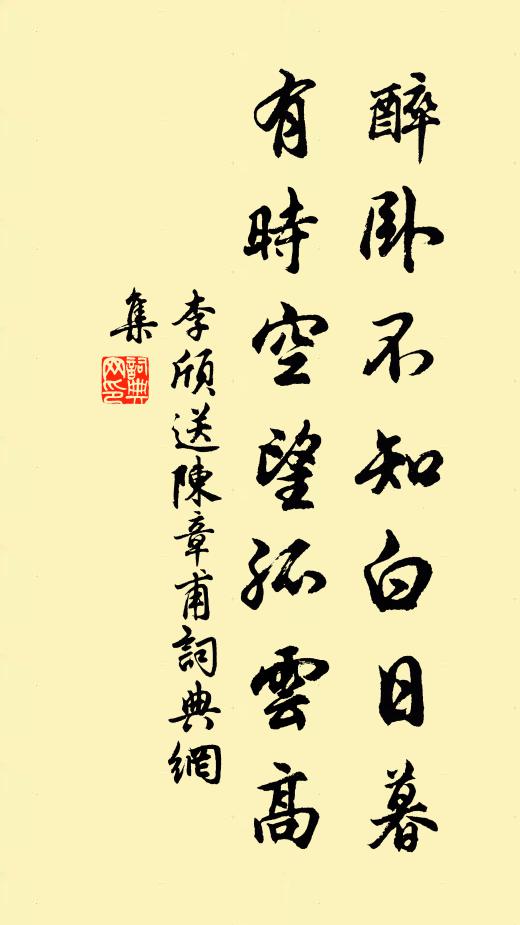 醉卧不知白日暮
有時空望孤雲高
李頎送陳章甫詞典網
集
詞典
网印